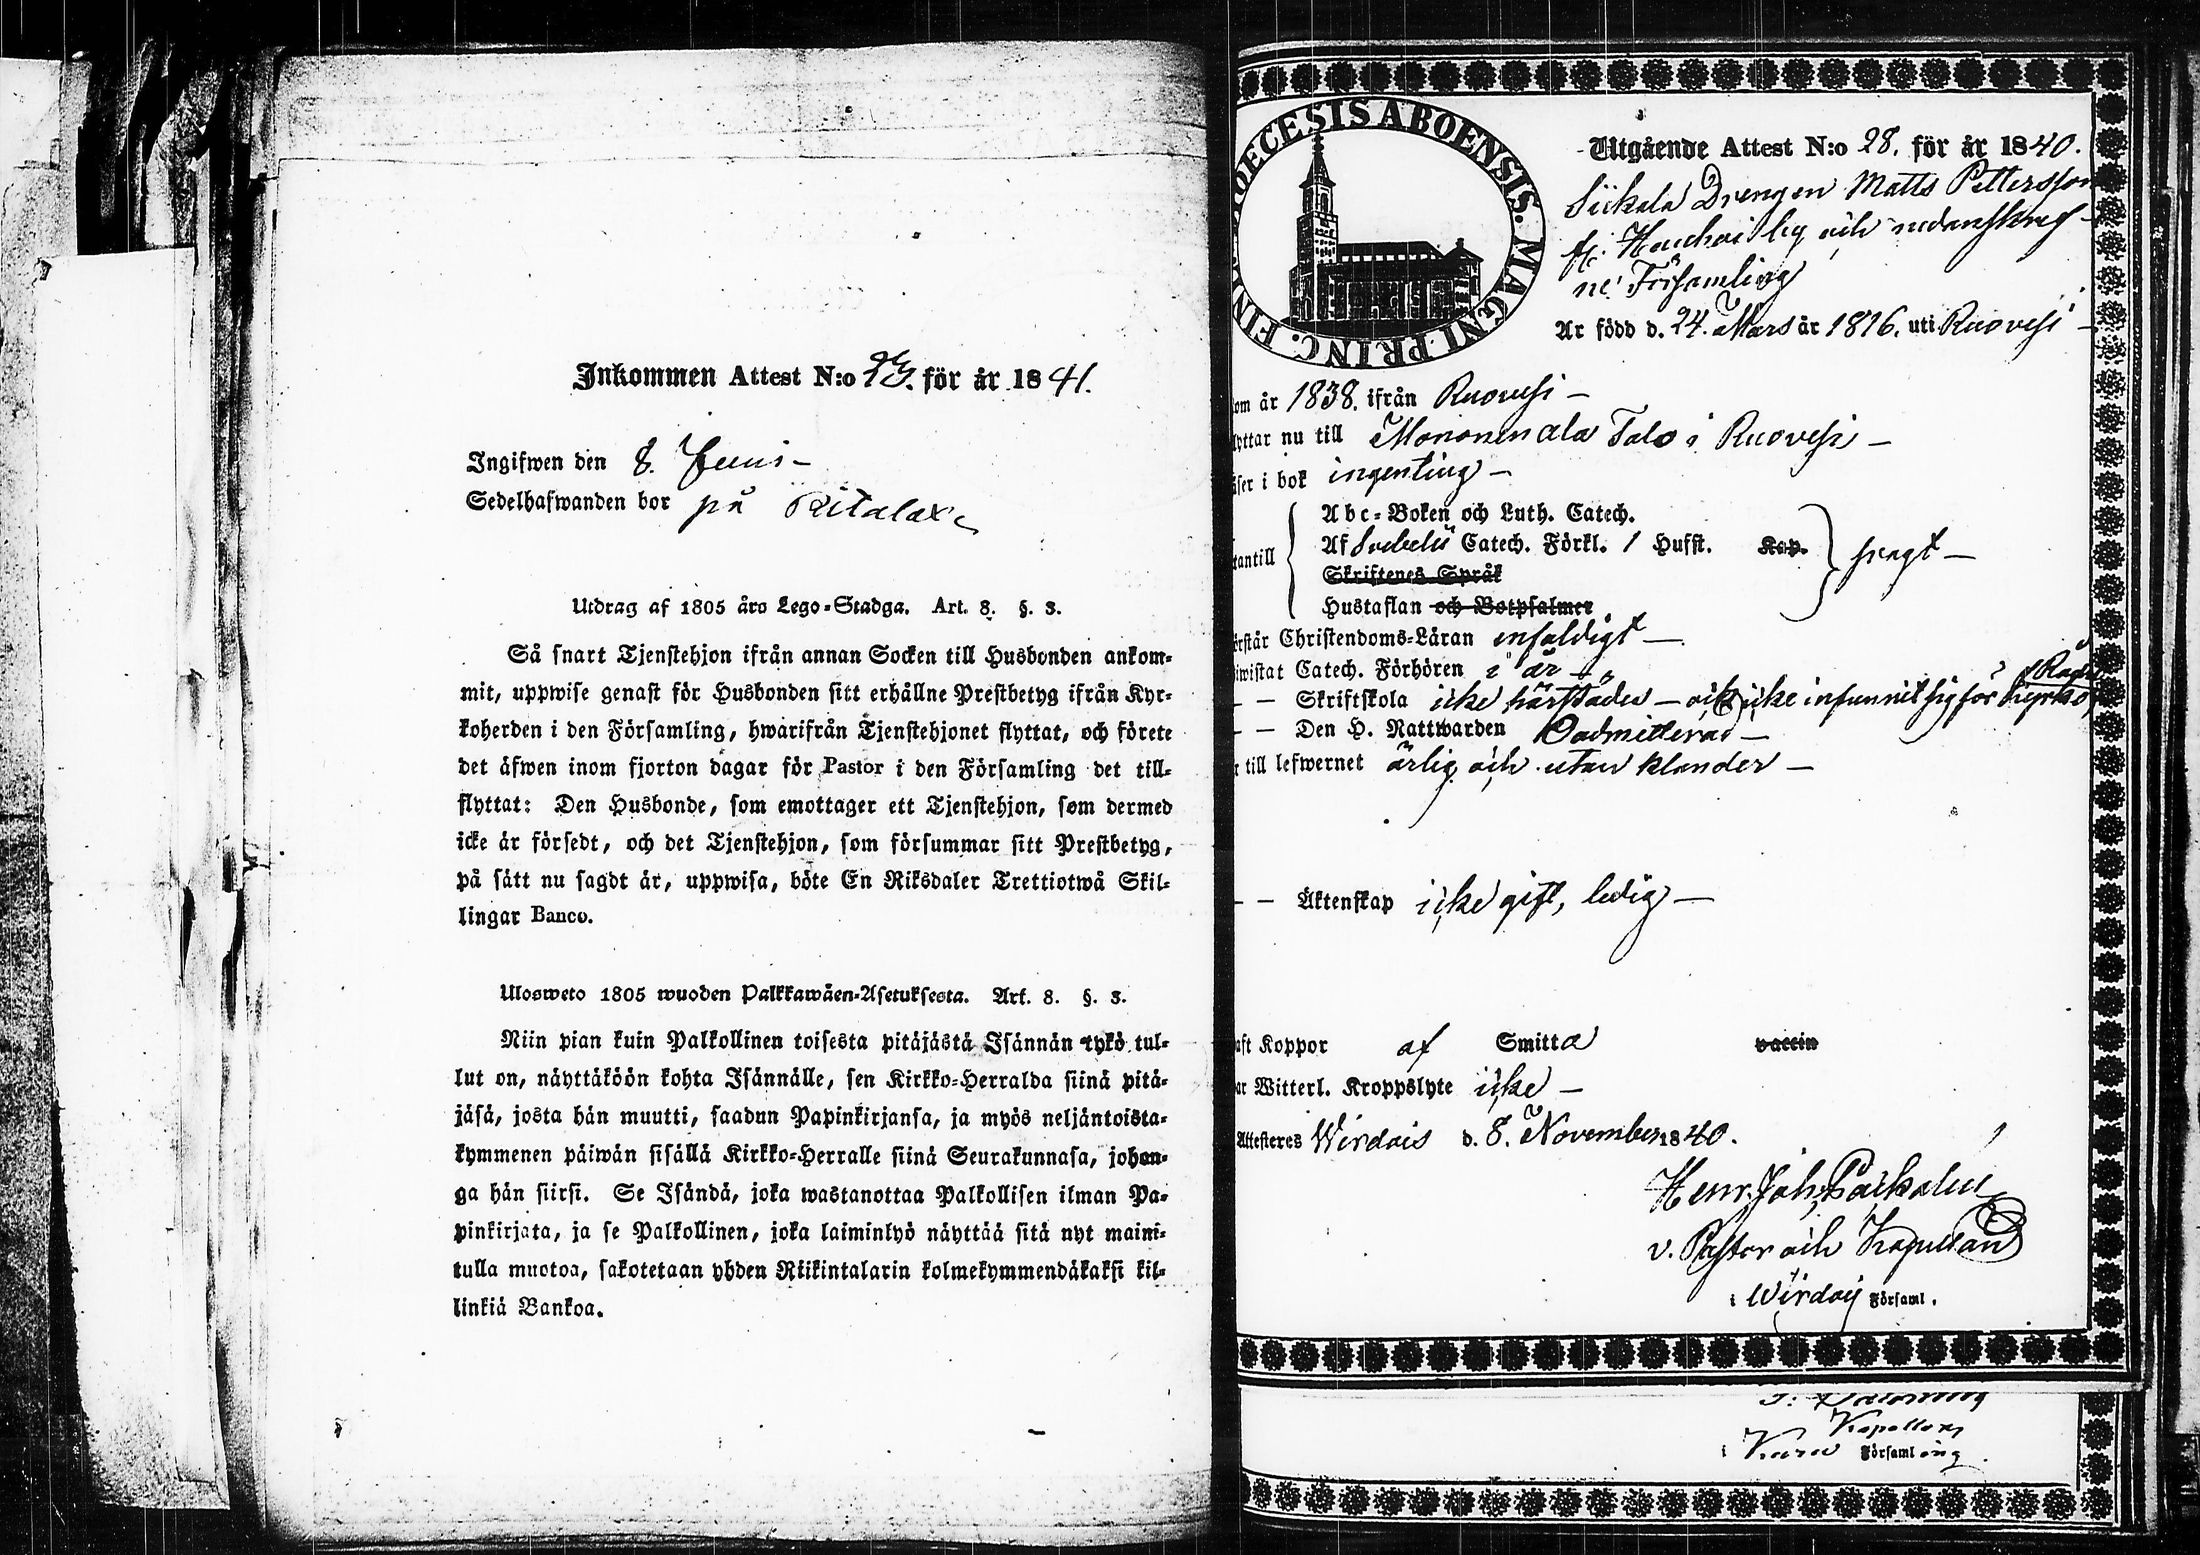 Inkommen Attest N:o 23. för år 1841.
Ingifwen den 8. Junii –
Sedelhafwanden bor på Ritalax
Utdrag af 1805 åro Lego-Stadga. Art. 8. §. 3.
Så snart Tjenstehjon ifrån annan Socken till Husbonden ankom-
mit, uppwise genast för Husbonden sitt erhållne Prestbetyg ifrån Kyr-
koherden i den Församling, hwarifrån Tjenstehjonet flyttat, och förete
det åfwen inom fjorton dagar för Pastor i den Församling det till-
flyttat: Den Husbonde, som emottager ett Tjenstehjon, som dermed
icke år försedt, och det Tjenstehjon, som försummar sitt Prestbetyg,
på sått nu sagdt år, uppwisa, böte En Riksdaler Trettiotwå Skil-
lingar Banco.
Ulosweto 1805 wuoden Palkkawåen-Asetuksesta. Art. 8. §. 3.
Niin pian kuin Palkollinen toisesta pitåjåstå Isånnån tykö tul-
lut on, nåyttåköön kohta Isånnålle, sen Kirkko-Herralda siinå pitå-
jåså, josta hån muutti, saadun Papinkirjansa, ja myös neljåntoista-
kymmenen påiwån sisållå Kirkko-Herralle siinå Seurakunnasa, johon-
ga hån siirsi. Se Isåndå, joka wastanottaa Palkollisen ilman Pa-
pinkirjata, ja se Palkollinen, joka laiminlyö nåyttåå sitå nyt maini-
tulla muotoa, sakotetaan yhden Riikintalarin kolmekymmendåkaksi kil-
linkiå Bankoa.
DIOECESIS ABOENSIS. MAGNI PRINC. FINL
Utgående Attest N:o 28. för år 1840.
Drengen Matts Pettersson
by och nedanskref-
ne Församling
Är född d. 24. Mars år 1816. uti Ruovesi –
om år 1838. ifrån Ruovesi –
yttar nu till Mononen ala Talo i Ruovesi –
åser i bok ingenting –
Abc-Boken och Luth. Catech.
Af Svebelii Catech. Förkl. 1 Hufst. Kap.
tantill svagt –
Skriftenes Språk
Hustaflan och Botpsalmer
örstår Christendoms-Låran enfaldigt –
iwistat Catech. Förhören i år –
– – Skriftskola icke härstädes – och icke infunnit sig för
– – Den H. Nattwarden Oadmitterad –
r till lefwernet ärlig och utan klander –
– – Äktenskap icke gift, ledig –
aft Koppor af Smitta vaccin
ar Witterl. Kroppslyte icke –
Attesteres Wirdois d. 8. November 1840.
Henr. Joh.
v. Pastor och Kapellan
i Wirdois Församl.
Kapellan
i Församling